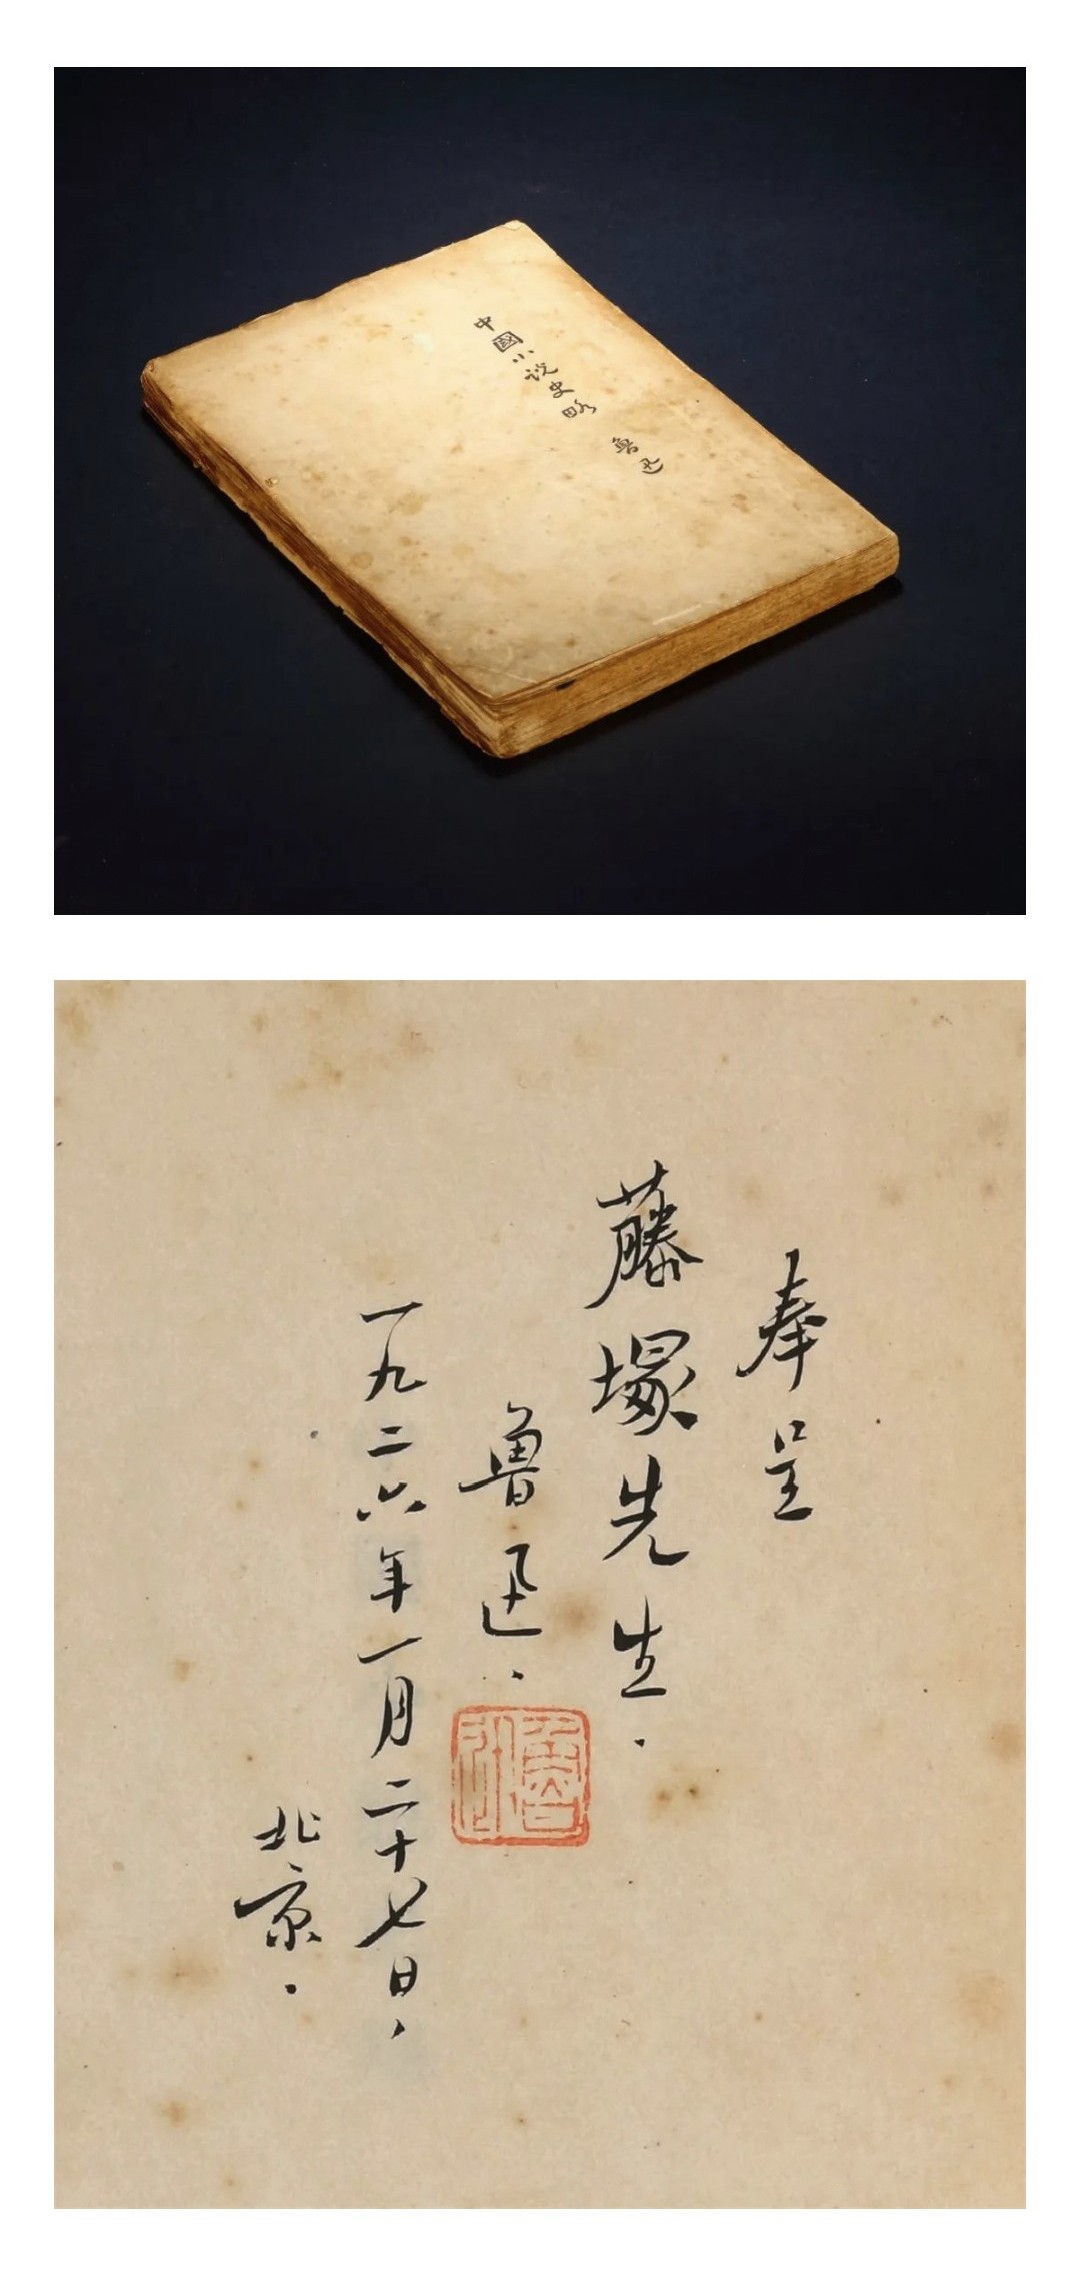 中國小说史略 魯迅
奉呈
藤塚先生．
魯迅．
魯迅
一九二六年一月二十七日，
北京．